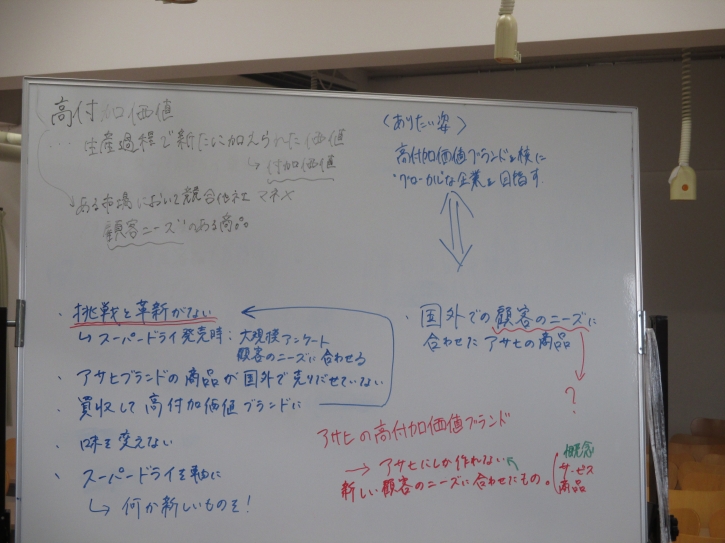 高付加価値
… 生産過程で新たに加えられた価値
↳ 付加価値
→ ある市場において競合他社 マネ×
顧客ニーズのある商品
〈ありたい姿〉
高付加価値ブランドを核に
グローカルな企業を目指す
・挑戦と革新がない
↳ スーパードライ発売時：大規模アンケート
顧客のニーズに合わせる
・アサヒブランドの商品が国外で売りだせていない
・買収して高付加価値ブランドに
・味を変えない
・スーパードライを軸に
↳ 何か新しいものを！
・国外での顧客のニーズに
合わせたアサヒの商品
？
アサヒの高付加価値ブランド
→ アサヒにしか作れない
新しい顧客のニーズに合わせたもの。
概念
サービス
商品